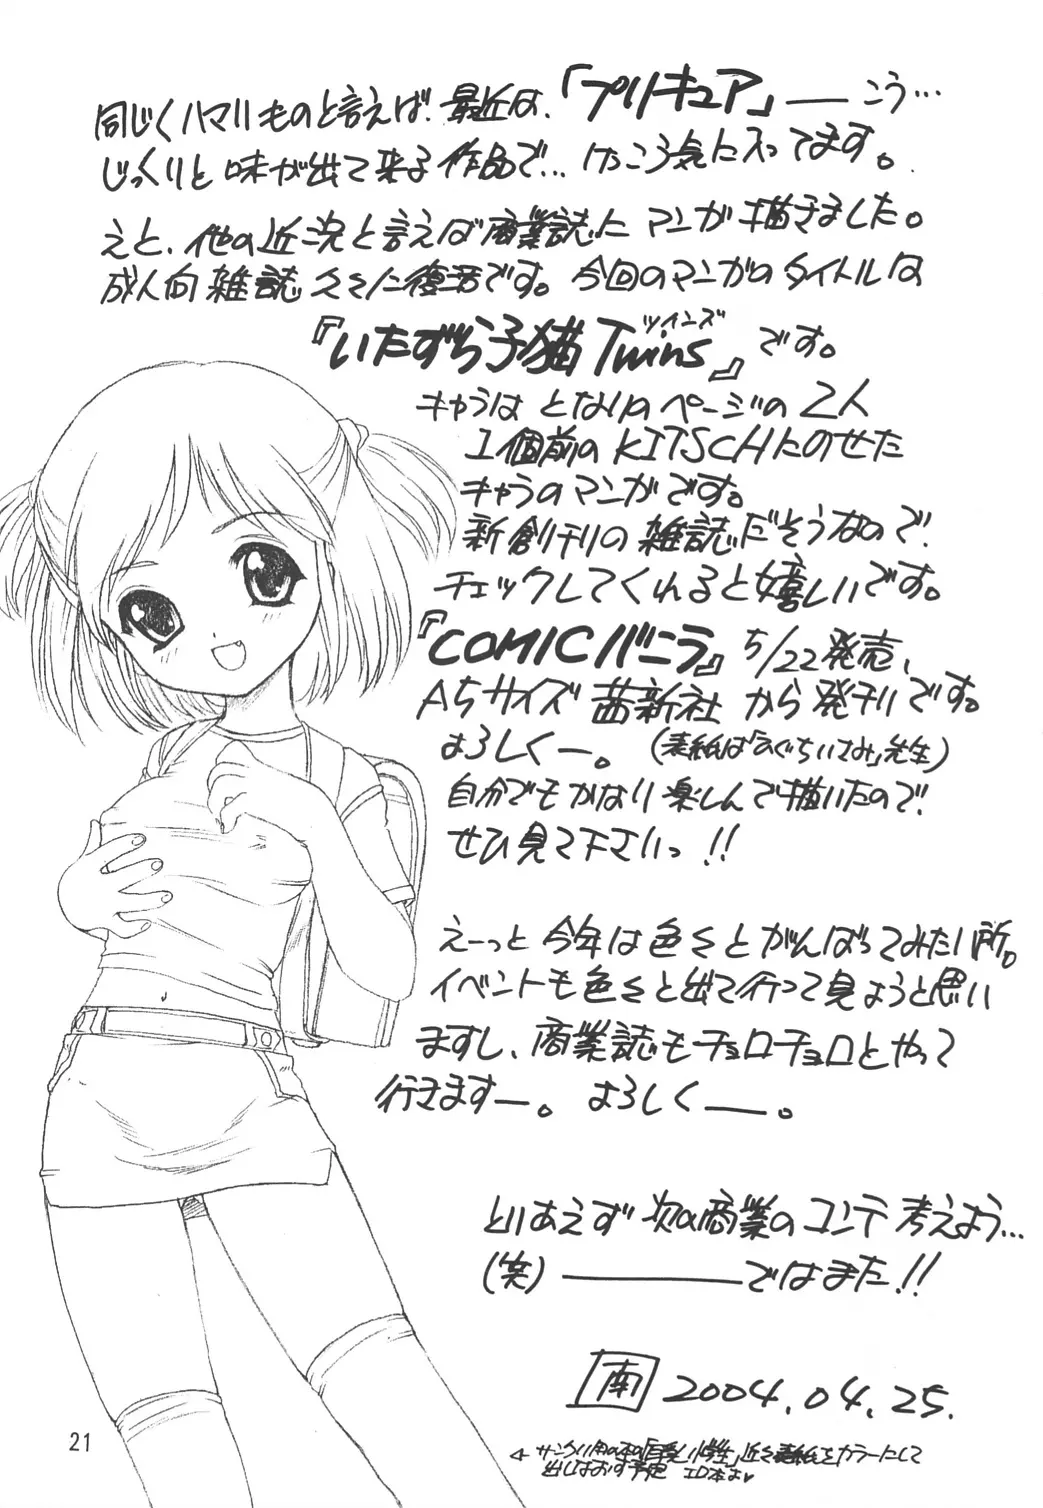 同じくハマりものと言えば、最近は、「プリキュア」——こう…
じっくりと味が出て来る作品で…けっこう気に入ってます。
えと、他の近況と言えば商業誌にマンガ描きました。
成人向雑誌久々に復活です。今回のマンガのタイトルは
『いたずら子猫Twins』です。
ツインズ
キャラはとなりのページの2人
1個前のKITSCHにのせた
キャラのマンガです。
新創刊の雑誌だそうなので、
チェックしてくれると嬉しいです。
『COMICバニラ』5/22発売、
A5サイズ 茜新社から発刊です。
よろしくー。(表紙は「ひぐちいさみ」先生)
自分でもかなり楽しんで描いたので、
ぜひ見て下さいっ!!
えーっと今年は色々とがんばってみたい所。
イベントも色々と出て行って見ようと思い
ますし、商業誌もチョロチョロとやって
行きますー。よろしくー。
とりあえず次の商業のコンテ考えよう…
(笑)————ではまた!!
南 2004.04.25.
21